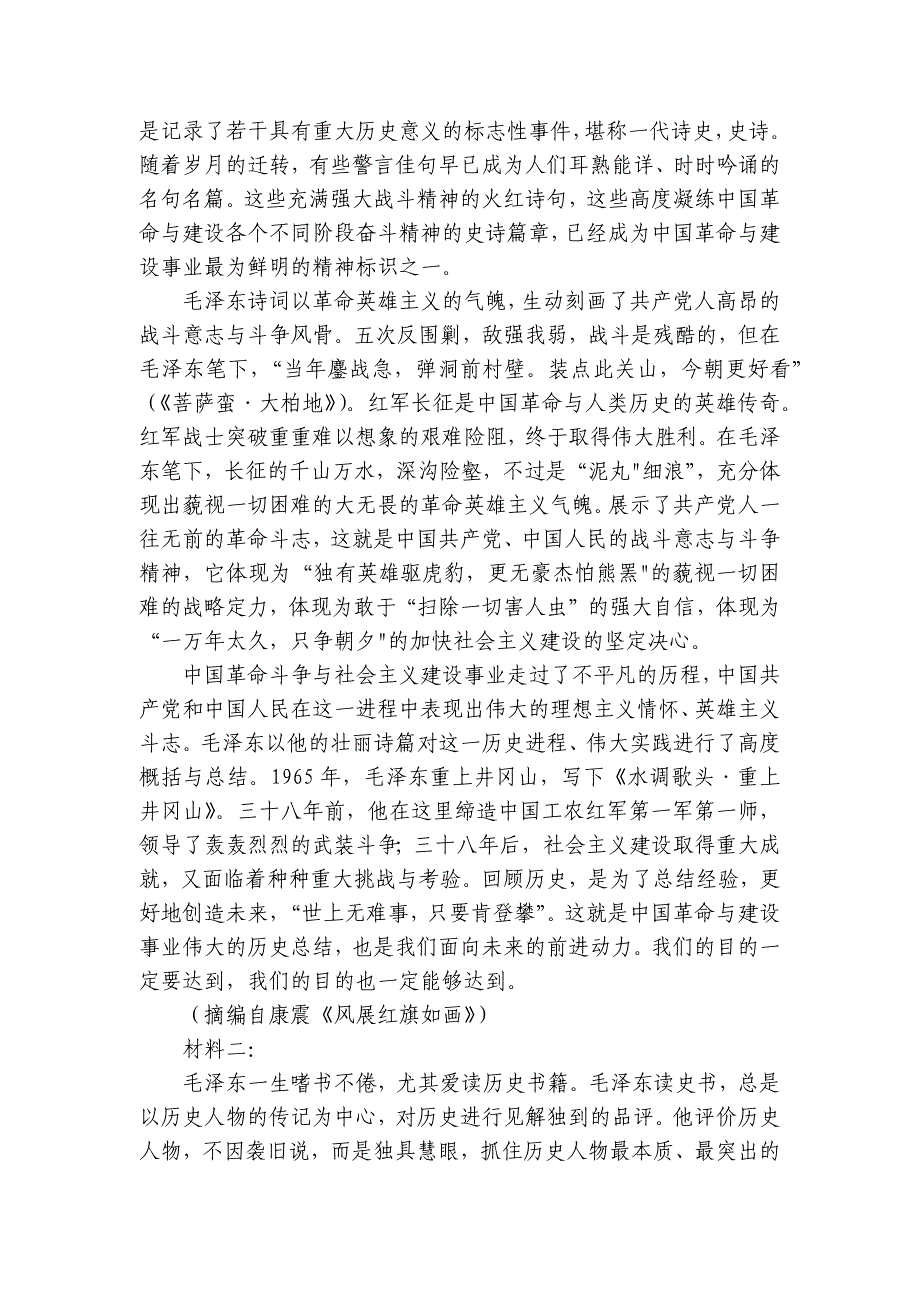 是记录了若干具有重大历史意义的标志性事件，堪称一代诗史，史诗。
随着岁月的迁转，有些警言佳句早已成为人们耳熟能详、时时吟诵的
名句名篇。这些充满强大战斗精神的火红诗句，这些高度凝练中国革
命与建设各个不同阶段奋斗精神的史诗篇章，已经成为中国革命与建
设事业最为鲜明的精神标识之一。
毛泽东诗词以革命英雄主义的气魄，生动刻画了共产党人高昂的
战斗意志与斗争风骨。五次反围剿，敌强我弱，战斗是残酷的，但在
毛泽东笔下，“当年鏖战急，弹洞前村壁。装点此关山，今朝更好看”
（《菩萨蛮·大柏地》）。红军长征是中国革命与人类历史的英雄传奇。
红军战士突破重重难以想象的艰难险阻，终于取得伟大胜利。在毛泽
东笔下，长征的千山万水，深沟险壑，不过是“泥丸"细浪”，充分体
现出藐视一切困难的大无畏的革命英雄主义气魄。展示了共产党人一
往无前的革命斗志，这就是中国共产党、中国人民的战斗意志与斗争
精神，它体现为“独有英雄驱虎豹，更无豪杰怕熊罴"的藐视一切困
难的战略定力，体现为敢于“扫除一切害人虫”的强大自信，体现为
“一万年太久，只争朝夕"的加快社会主义建设的坚定决心。
中国革命斗争与社会主义建设事业走过了不平凡的历程，中国共
产党和中国人民在这一进程中表现出伟大的理想主义情怀、英雄主义
斗志。毛泽东以他的壮丽诗篇对这一历史进程、伟大实践进行了高度
概括与总结。1965 年，毛泽东重上井冈山，写下《水调歌头·重上
井冈山》。三十八年前，他在这里缔造中国工农红军第一军第一师，
领导了轰轰烈烈的武装斗争；三十八年后，社会主义建设取得重大成
就，又面临着种种重大挑战与考验。回顾历史，是为了总结经验，更
好地创造未来，“世上无难事，只要肯登攀”。这就是中国革命与建设
事业伟大的历史总结，也是我们面向未来的前进动力。我们的目的一
定要达到，我们的目的也一定能够达到。
（摘编自康震《风展红旗如画》）
材料二：
毛泽东一生嗜书不倦，尤其爱读历史书籍。毛泽东读史书，总是
以历史人物的传记为中心，对历史进行见解独到的品评。他评价历史
人物，不因袭旧说，而是独具慧眼，抓住历史人物最本质、最突出的